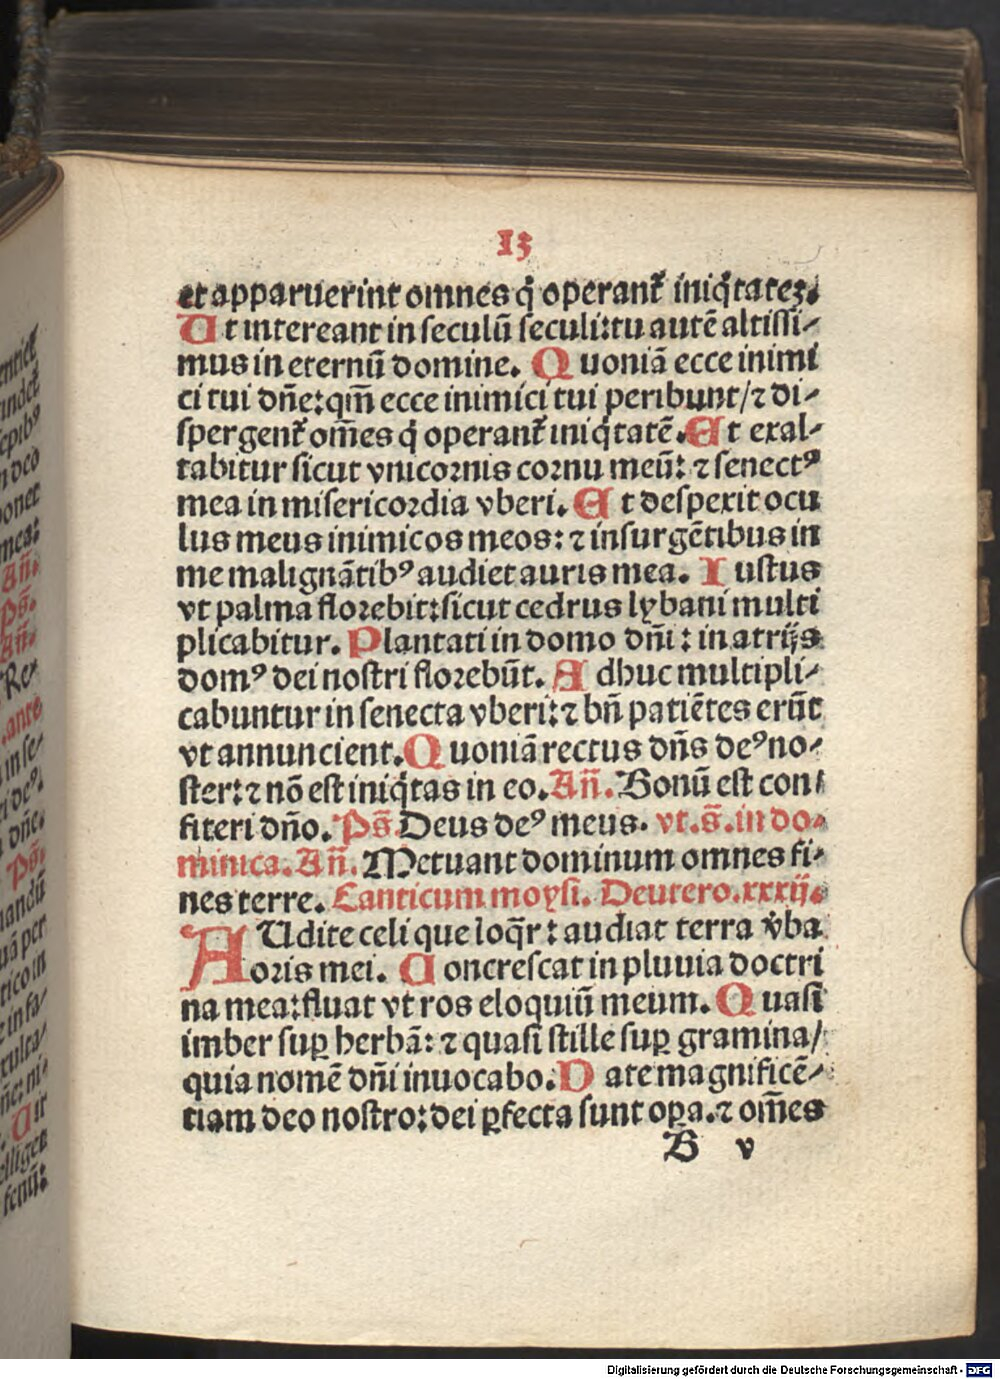 13
et apparuerint omnes q̇ operant᷑ iniq̇tatez.
Ut intereant in seculū seculi:tu autē altissi-
mus in eternū domine. Quoniā ecce inimi
ci tui dn̄e:qm̄ ecce inimici tui peribunt/⁊ di-
spergent᷑ om̄es q̇ operant᷑ iniq̇tatē. Et exal-
tabitur sicut vnicornis cornu meū: ⁊ senectꝰ
mea in misericordia vberi. Et despexit ocu
lus meus inimicos meos: ⁊ insurgētibus in
me malignātibꝰ audiet auris mea. Iustus
vt palma florebit:sicut cedrus lybani multi
plicabitur. Plantati in domo dn̄i : in atrijs
domꝰ dei nostri florebūt. Adhuc multipli-
cabuntur in senecta vberi:⁊ bn̄ patiētes erūt
vt annuncient. Quoniā rectus dn̄s deꝰ no-
ster:⁊ nō est iniq̇tas in eo. An̄. Bonū est con-
fiteri dn̄o. Ps̄. Deus deꝰ meus. vt.s̄.in do-
minica. An̄. Metuant dominum omnes fi-
nes terre. Canticum moysi. Deutero.xxxij.
AUdite celi que loq̄r : audiat terra v̇ba
oris mei. Concrescat in pluuia doctri
na mea:fluat vt ros eloquiū meum. Quasi
imber suꝑ herbā: ⁊ quasi stille suꝑ gramina/
quia nomē dn̄i inuocabo. Date magnificē-
tiam deo nostro:dei ꝑfecta sunt oꝑa.⁊ om̄es
B v
entiet᷑
andet᷑
cpibꝰ
n deo
ponet
mea:
An̄.
Ps̄.
An̄.
Re-
.ante
in se-
ri deꝰ.
dn̄e.
Ps̄.
nandū
uā per
rico in
in fa-
culta-
n̄e: ni-
Uir
elliget
fenū:
Digitalisierung gefördert durch die Deutsche Forschungsgemeinschaft - DFG